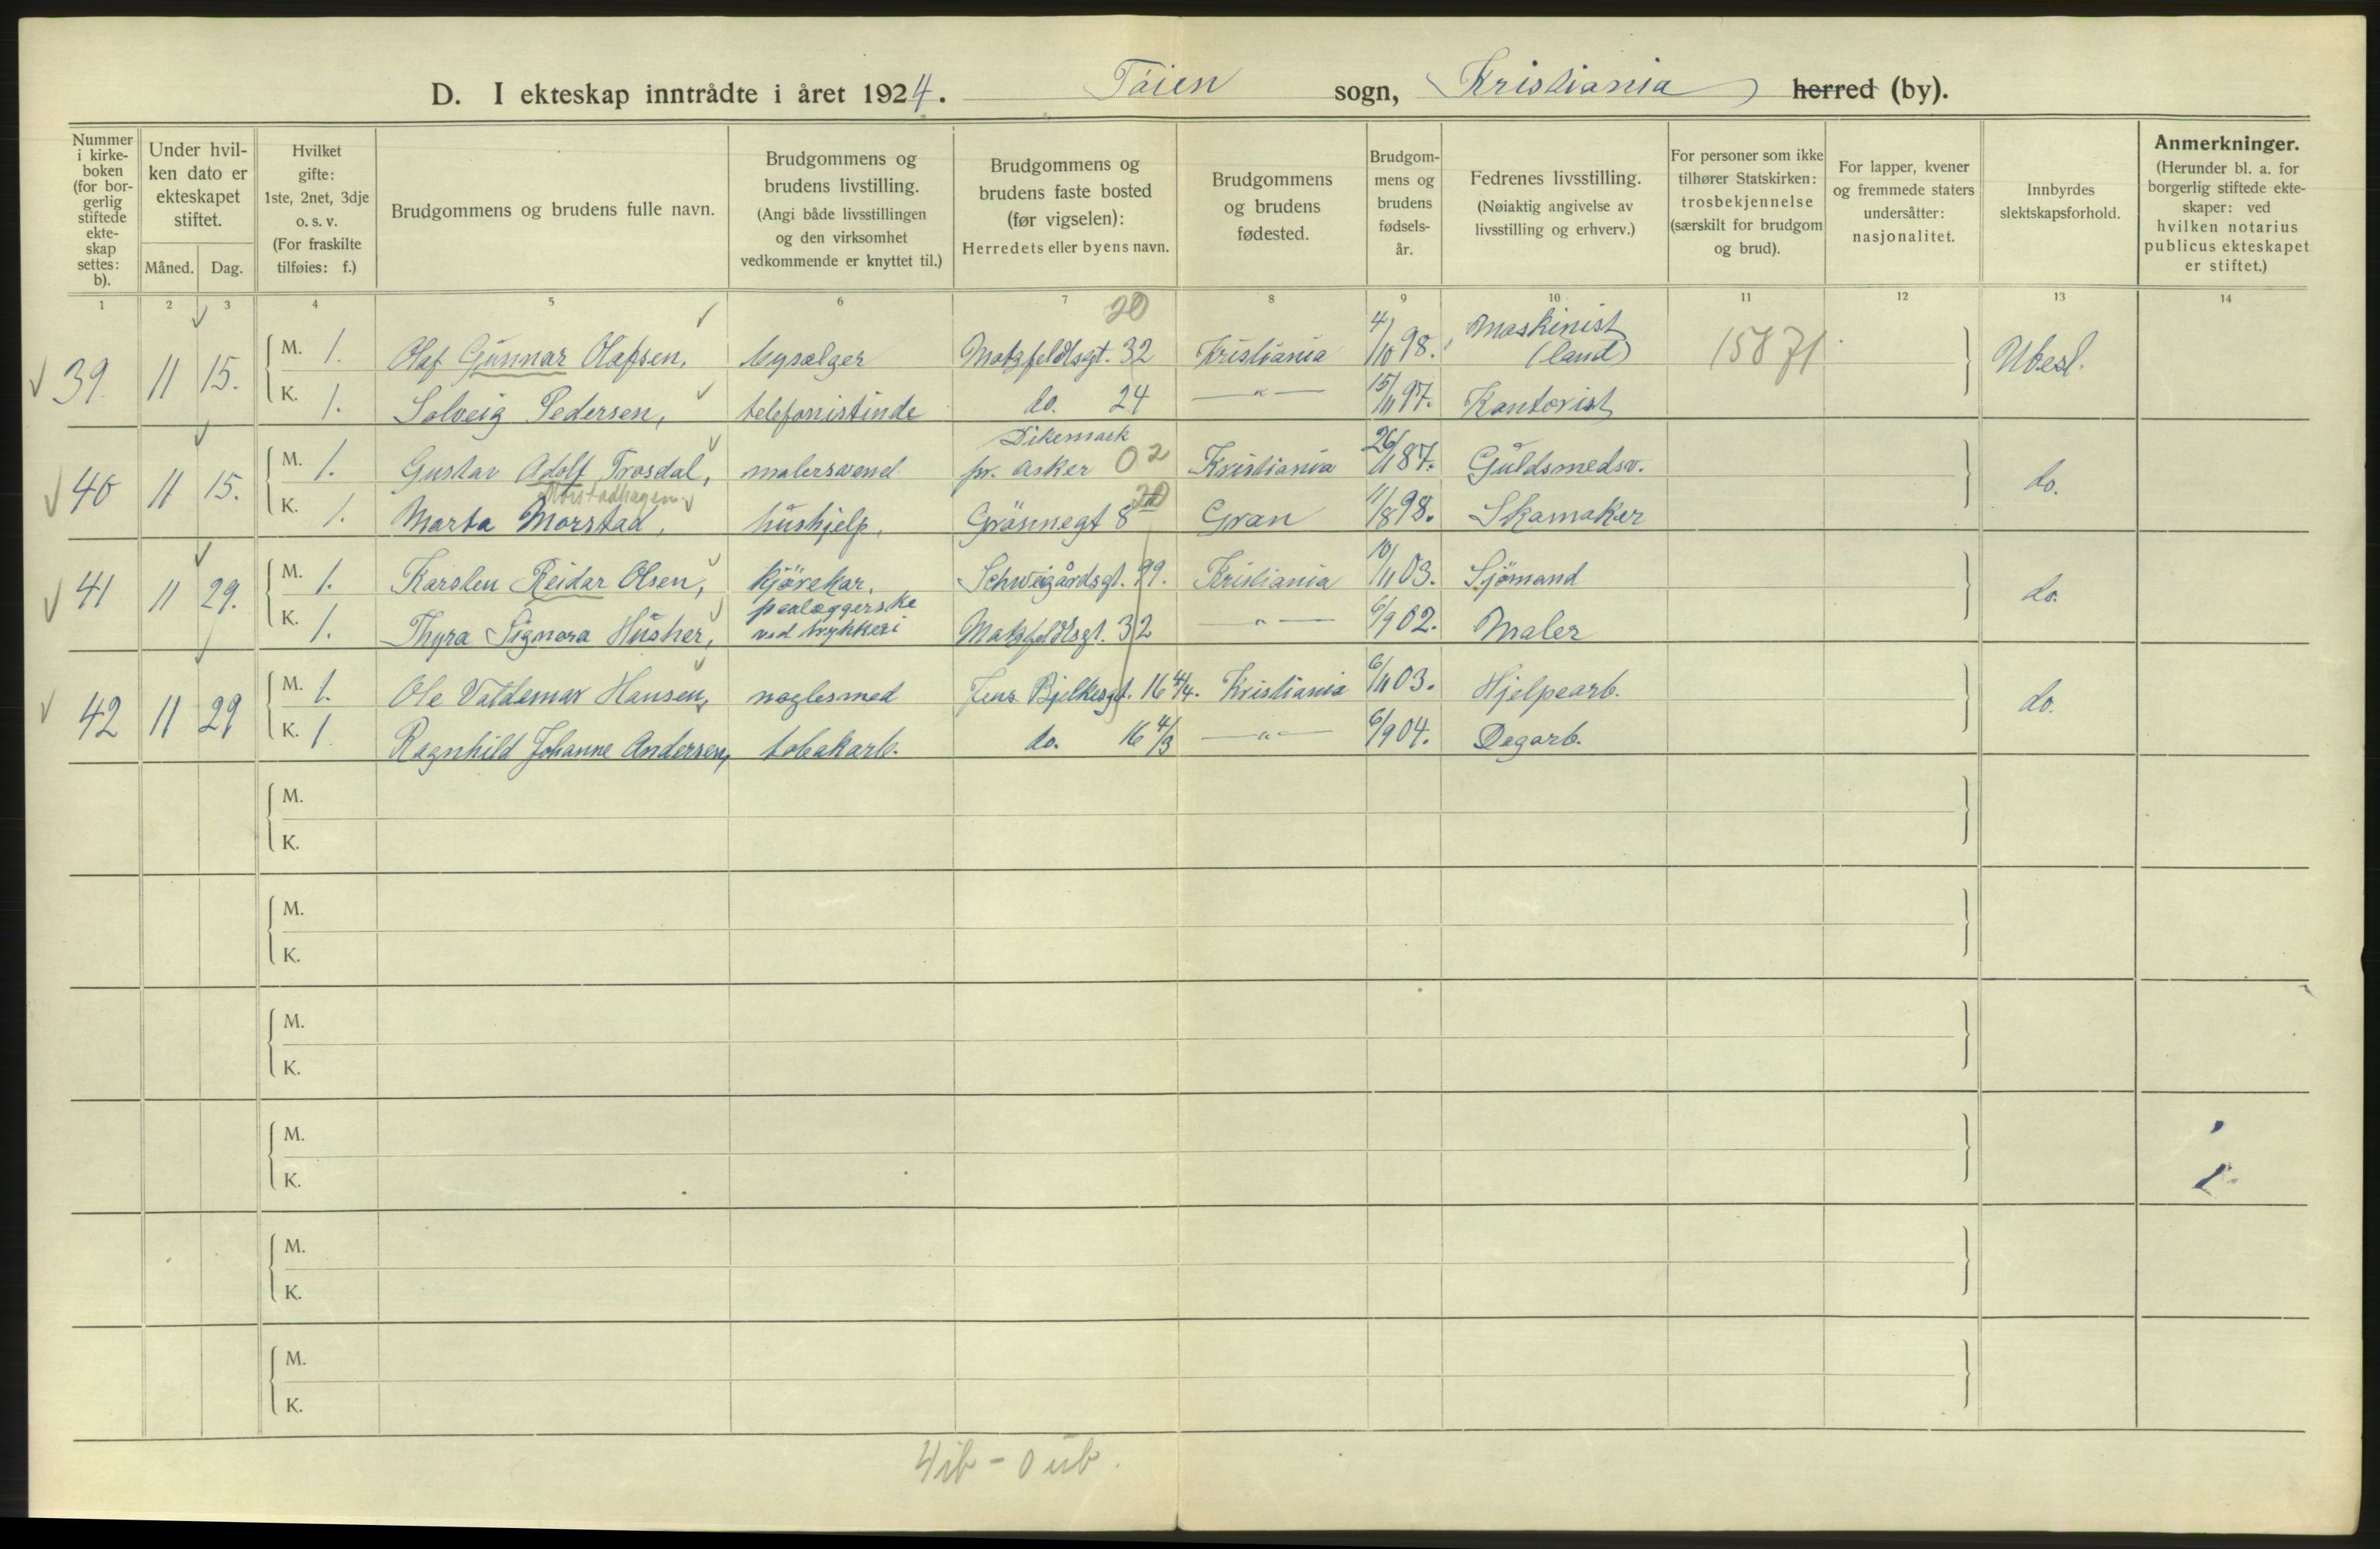 D. I ekteskap inntrådte i året 1924. Töien sogn, Kristiania herred (by).
Nummer i kirkeboken (for borgerlig stiftede ekteskap settes: b).
Under hvilken dato er ekteskapet stiftet.
Måned. Dag.
Hvilket gifte: 1ste, 2net, 3dje o. s. v. (For fraskilte tilføies: f.)
Brudgommens og brudens fulle navn.
Brudgommens og brudens livstilling. (Angi både livsstillingen og den virksomhet vedkommende er knyttet til.)
Brudgommens og brudens faste bosted (før vigselen): Herredets eller byens navn.
Brudgommens og brudens fødested.
Brudgommens og brudens fødsels-år.
Fedrenes livsstilling. (Nøiaktig angivelse av livsstilling og erhverv.)
For personer som ikke tilhører Statskirken: trosbekjennelse (særskilt for brudgom og brud).
For lapper, kvener og fremmede staters undersåtter: nasjonalitet.
Innbyrdes slektskapsforhold.
Anmerkninger. (Herunder bl. a. for borgerlig stiftede ekteskaper: ved hvilken notarius publicus ekteskapet er stiftet.)
1 2 3 4 5 6 7 8 9 10 11 12 13 14
20
39. 11 15. M. 1. Olaf Gunnar Olafsen, bysælger Motzfeldtsgt. 32 Kristiania 4/10 98. Maskinist (land) 15871 Ubesl.
K. 1. Solveig Pedersen, telefonistinde do. 24 —"— 15/11 97. Kontorist
40 11 15. M. 1. Gustav Adolf Trosdal, malersvend Dikemark pr. Asker 02 Kristiania 26/11 87. Guldsmedsv. do.
Morstadhagen
K. 1. Marta Morstad, hushjelp, Grönnegt 8 20 Gran 11/8 98. Skomaker
41 11 29. M. 1. Karsten Reidar Olsen, kjörekar. Schweigårdsgt. 99. Kristiania 10/11 03. Sjömand do.
K. 1. Thyra Signora Husher, pealæggerske ved trykkeri Motzfeldtsgt. 32 —"— 6/9 02. Maler
42 11 29 M. 1. Ole Valdemar Hansen, nøglesmed Jens Bjelkesgt. 16 4/4. Kristiania 6/11 03. Hjelpearb. do.
K. 1 Ragnhild Johanne Andersen, tobakarb. do. 16 4/3 —"— 6/9 04. Degarb.
M.
K.
M.
K.
M.
K.
M.
K.
M.
K.
M.
K.
4 ib - 0 ub.